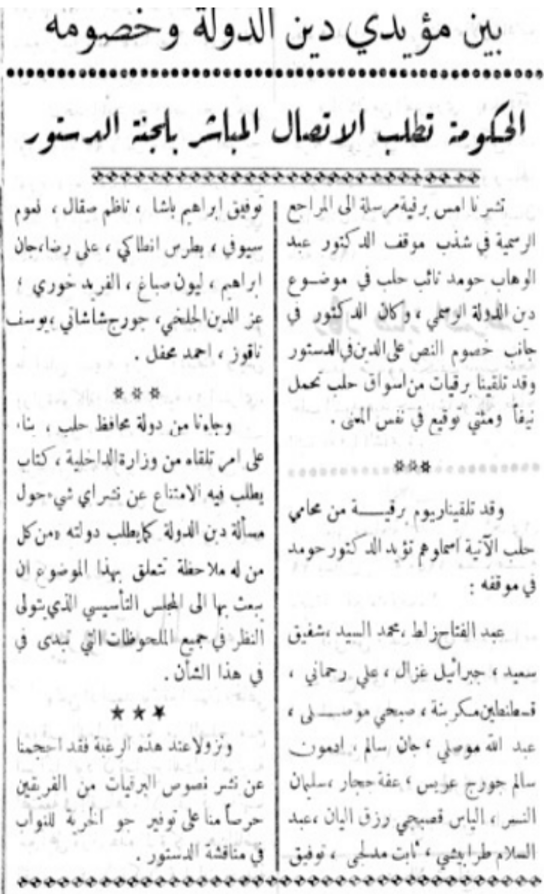 بين مؤيدي دين الدولة وخصومه
الحكومة تطلب الاتصال المباشر بلجنة الدستور
نشرنا امس برقية مرسلة الى المراجع
الرسمية في شذب موقف الدكتور عبد
الوهاب حومد نائب حلب في موضوع
دين الدولة الرسمي، وكان الدكتور في
جانب خصوم النص على الدين في الدستور
وقد تلقينا برقيات من اسواق حلب تحمل
نيفاً ومئتي توقيع في نفس المعنى.
***
وقد تلقينا اليوم برقيـــة من محامي
حلب الآتية اسماؤهم تؤيد الدكتور حومد
في موقفه :
عبد الفتاح زلط، محمد السيد، شفيق
سعيد، جبرائيل غزال، علي رحماني،
قسطنطين مكربنة، صبحي موصـــلي،
عبد الله موصلي، جان سالم، ادمون
سالم جورج عويس، عفة حجار، سليمان
النسر، الياس قصبجي رزق اليان، عبد
السلام طرابيشي، ثابت مدلجي، توفيق
توفيق ابراهيم باشا، ناظم صقال، نعوم
سيوفي، بطرس انطاكي، علي رضا، جان
ابراهيم، ليون صباغ، الفريد خوري،
عز الدين الجلخي، جورج شاشاتي، يوسف
ناقوز، احمد محفل.
***
وجاءنا من دولة محافظ حلب، بناء
على امر تلقاه من وزارة الداخلية، كتاب
يطلب فيه الامتناع عن نشر اي شيء حول
مسألة دين الدولة كما يطلب دولته من كل
من له ملاحظة تتعلق بهذا الموضوع ان
يبعث بها الى المجلس التأسيسي الذي يتولى
النظر في جميع الملحوظات التي تبدى في
في هذا الشأن.
***
ونزولا عند هذه الرغبة فقد احجمنا
عن نشر نصوص البرقيات من الفريقين
حرصاً منا على توفير جو الحرية للنواب
في مناقشة الدستور.